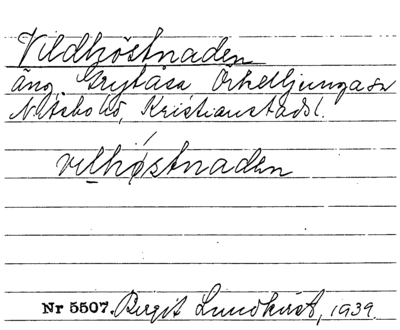 Vildhöstnaden
äng, Grytåsa Örkelljunga sn
N. Åsbo hd, Kristianstads l.
velhøstnaden
Nr 5507. Birgit Lundkvist, 1939.